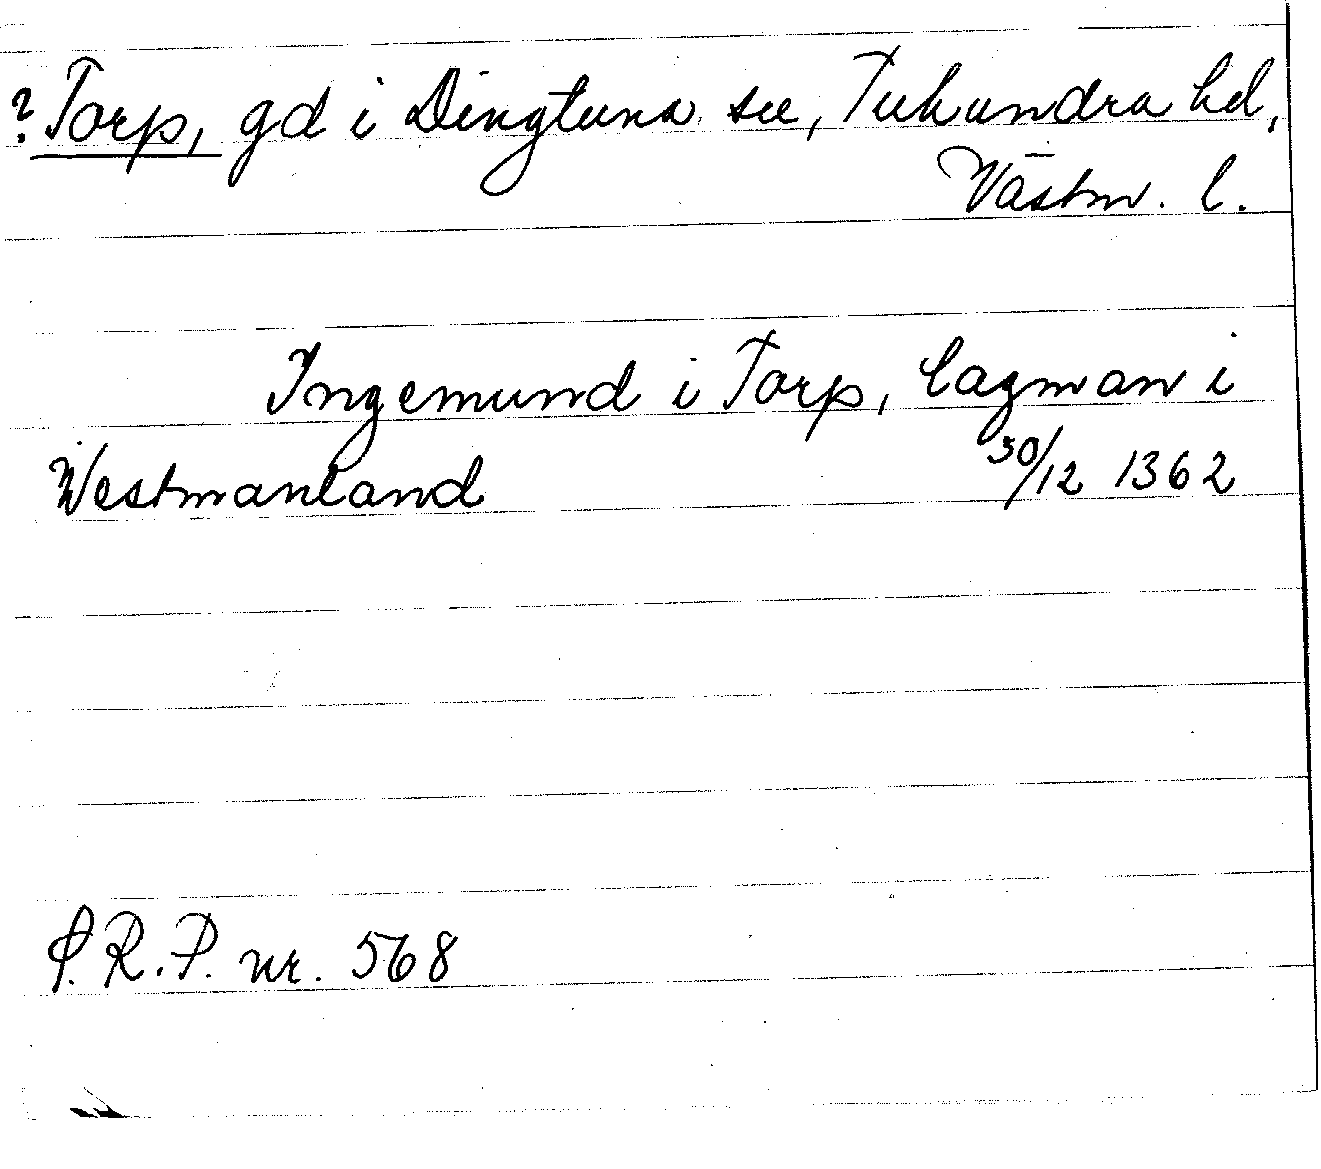 ? Torp, gd i Dingtuna sn, Tuhundra hd,
Västm. l.
Ingemund i Torp, lagman i
Westmanland 30/12 1362
S.R.P. nr. 568